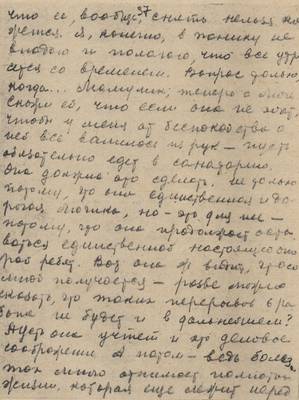 что ее, вообще, снять нельзя ка-
жется. Я, конечно, в панику не
впадаю и полагаю, что все утря-
сется со временем. Вопрос только,
когда... Мамулик, теперь о
скажи ей, что если она не хочет,
чтобы у меня от беспокойства о
ней все валилось из рук — пусть
обязательно едет в санаторию.
Она должна это сделать не только
потому, что она единственная и до-
рогая но — это для нее —
потому, что она продолжает оста-
ваться единственной настоящей
ребят. Вот она и видит, что со
мной получается — разве можно
сказать, что таких перерывов в ра-
боте не будет и в дальнейшем?
Пусть она учтет и это деловое
соображение. А потом — ведь болезнь
так много отнимает полноты
жизни, которая еще лежит перед